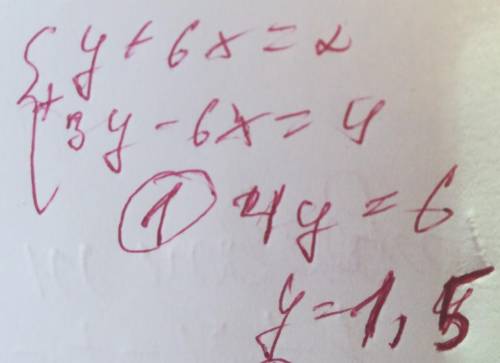 { y + 6x = 2
+ 3y - 6x = 4
① 4y = 6
y = 1,5